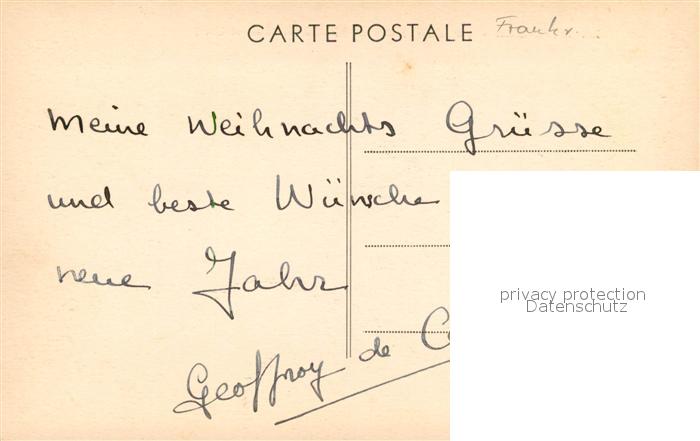 CARTE POSTALE Frankr...
meine Weihnachts Grüsse
und beste Wünsche
neue Jahr
Geoffroy de C
privacy protection
Datenschutz